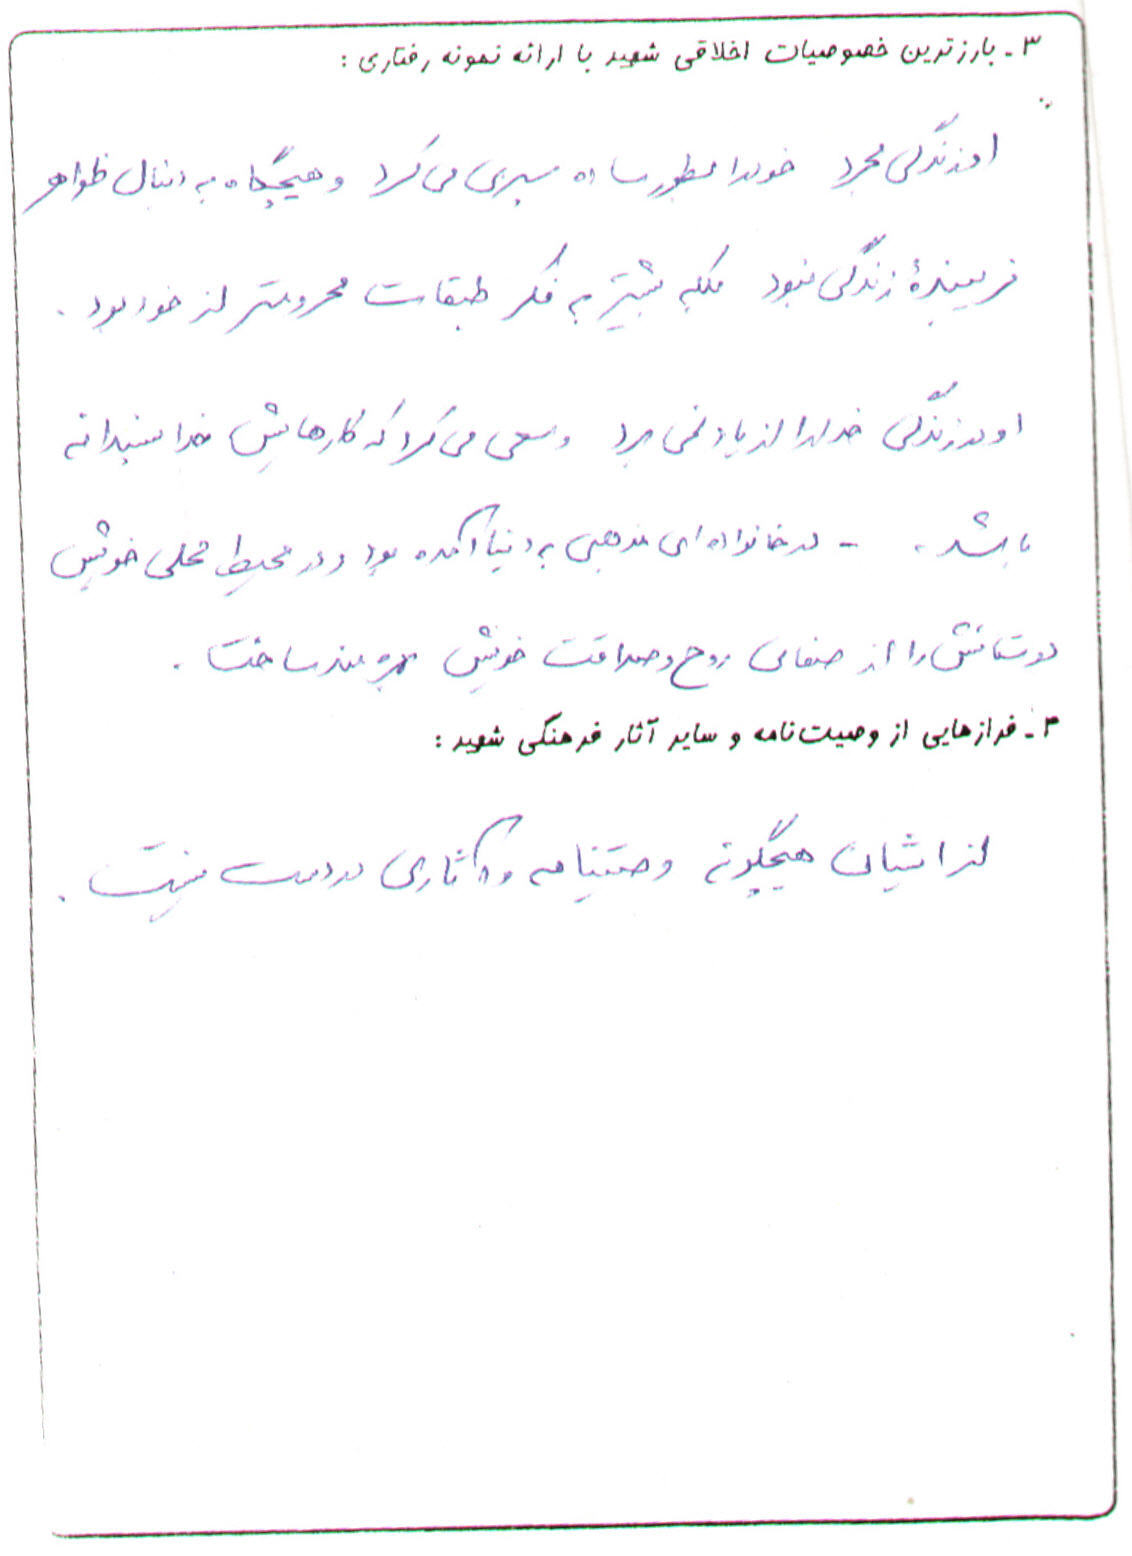 ۳ـ بارزترین خصوصیات اخلاقی شهید با ارائه نمونه رفتاری :
او زندگی مجرد خود را بطور ساده سپری می کرد و هیچگاه به دنبال ظواهر
فریبندهٔ زندگی نبود بلکه بیشتر به فکر طبقات محرومتر از خود بود .
او در زندگی خدا را از یاد نمی برد و سعی می کرد که کارهایش خدا پسندانه
باشد . - در خانواده ای مذهبی به دنیا آمده بود و در محیط محلی خویش
دوستانش را از صفای روح و صداقت خویش بهره مند ساخت .
۴ـ فرازهایی از وصیت‌نامه و سایر آثار فرهنگی شهید :
از ایشان هیچگونه وصیتنامه و آثاری در دست نیست .